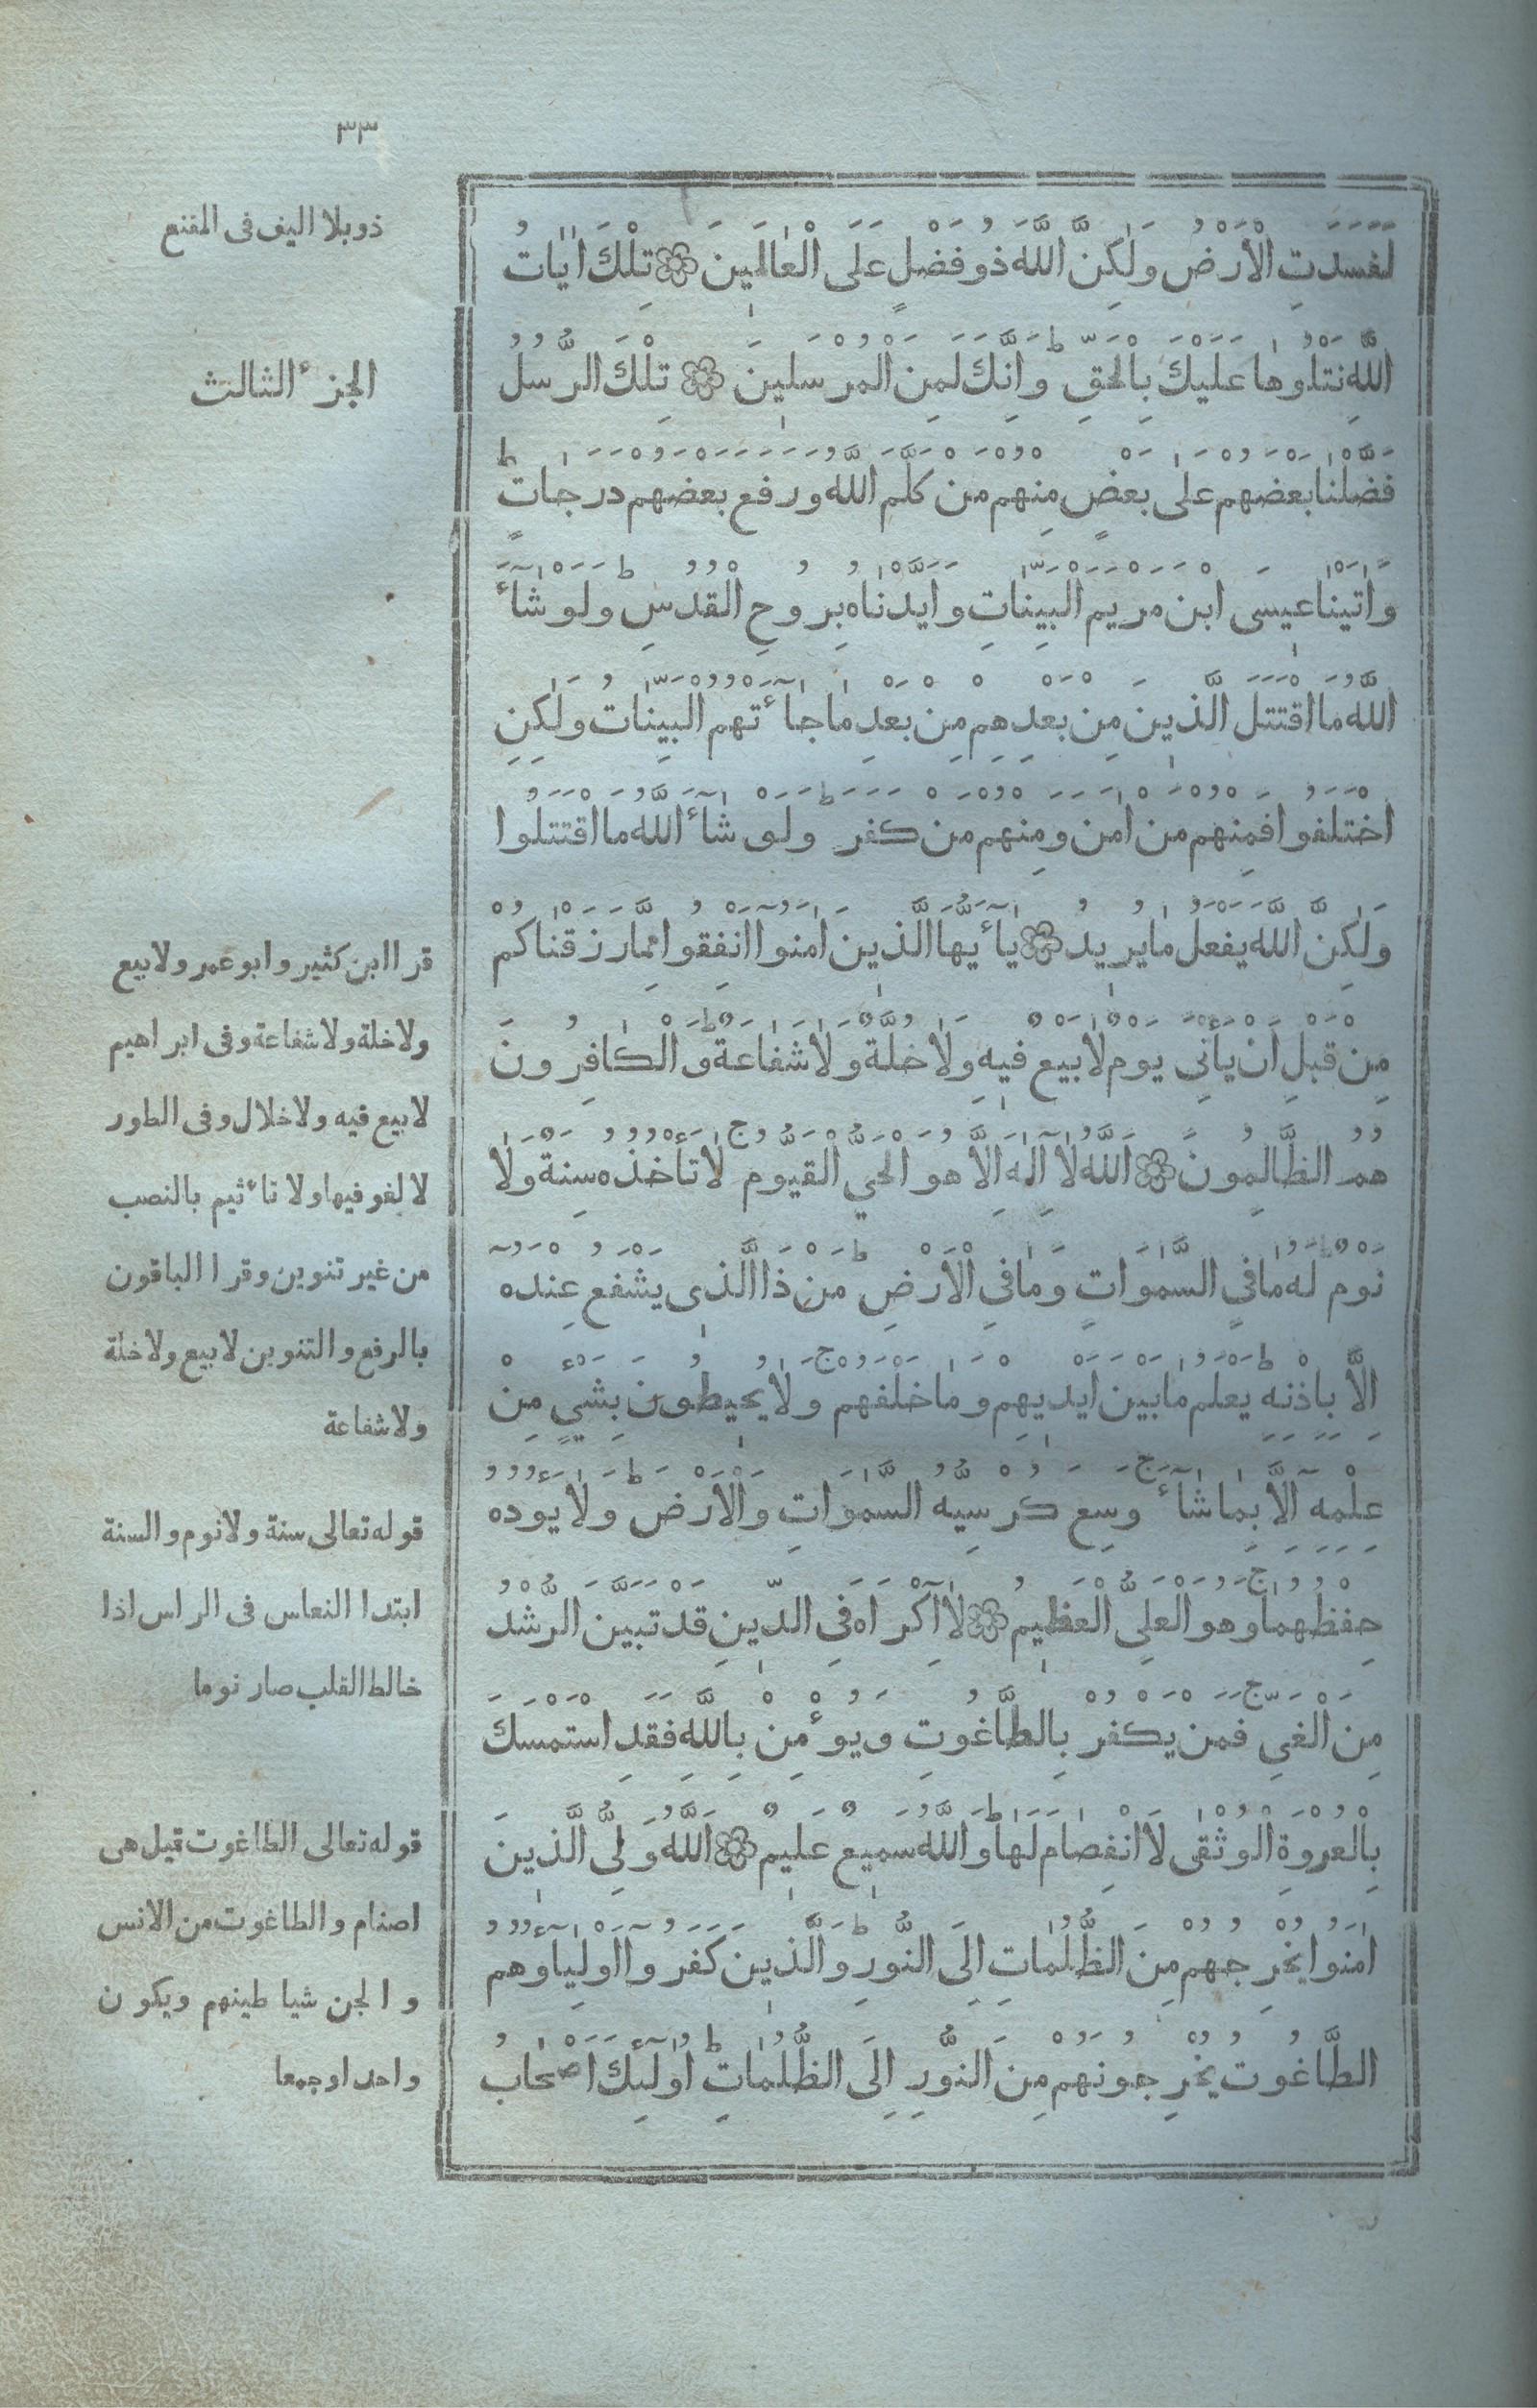 ٣٣
ذو بلا اليف فى المقنع
الجزء الثالث
لَفَسَدَتِ الْاَرْضُ وَلٰكِنَّ اللَّهَ ذُو فَضْلٍ عَلَى الْعٰالَمِينَ ۞ تِلْكَ اٰيٰاتُ
اللَّهِ نَتْلُوهٰا عَلَيْكَ بِالْحَقِّ ط وَاِنَّكَ لَمِنَ الْمُرْسَلِينَ ۞ تِلْكَ الرُّسُلُ
فَضَّلْنٰا بَعْضَهُمْ عَلىٰ بَعْضٍ مِنْهُمْ مَنْ كَلَّمَ اللَّهُ وَرَفَعَ بَعْضَهُمْ دَرَجٰاتٍ ط
وَاٰتَيْنٰا عِيسَى ابْنَ مَرْيَمَ الْبَيِّنٰاتِ وَاَيَّدْنٰاهُ بِرُوحِ الْقُدُسِ ط وَلَوْ شٰآءَ
اللَّهُ مٰا اقْتَتَلَ الَّذِينَ مِنْ بَعْدِهِمْ مِنْ بَعْدِ مٰا جٰآءَتْهُمُ الْبَيِّنٰاتُ وَلٰكِنِ
اخْتَلَفُوا فَمِنْهُمْ مَنْ اٰمَنَ وَمِنْهُمْ مَنْ كَفَرَ ط وَلَوْ شٰآءَ اللَّهُ مٰا اقْتَتَلُوا
وَلٰكِنَّ اللَّهَ يَفْعَلُ مٰا يُرِيدُ ۞ يٰآءَيُّهَا الَّذِينَ اٰمَنُوٓا اَنْفِقُوا مِمّٰا رَزَقْنٰاكُمْ
مِنْ قَبْلِ اَنْ يَأْتِىَ يَوْمٌ لٰا بَيْعٌ فِيهِ وَلٰا خُلَّةٌ وَلٰا شَفٰاعَةٌ ط وَالْكٰافِرُونَ
هُمُ الظَّالِمُونَ ۞ اَللَّهُ لٰآ اِلٰهَ اِلَّا هُوَ الْحَيُّ الْقَيُّومُ ج لٰا تَأْخُذُهُ سِنَةٌ وَلٰا
نَوْمٌ ط لَهُ مٰا فِي السَّمٰوَاتِ وَمٰا فِى الْاَرْضِ ط مَنْ ذَا الَّذِى يَشْفَعُ عِنْدَهُٓ
اِلَّا بِاِذْنِهِ ط يَعْلَمُ مٰا بَيْنَ اَيْدِيهِمْ وَمٰا خَلْفَهُمْ ج وَلٰا يُحِيطُونَ بِشَيْءٍ مِنْ
عِلْمِهِٓ اِلَّا بِمٰا شٰآءَ ج وَسِعَ كُرْسِيُّهُ السَّمٰوَاتِ وَالْاَرْضَ ط وَلٰا يَؤُدُهُ
حِفْظُهُمٰا ج وَهُوَ الْعَلِىُّ الْعَظِيمُ ۞ لٰآ اِكْرَاهَ فِى الدِّينِ قَدْ تَبَيَّنَ الرُّشْدُ
مِنَ الْغَىِّ ج فَمَنْ يَكْفُرْ بِالطَّاغُوتِ وَيُوءْمِنْ بِاللَّهِ فَقَدِ اسْتَمْسَكَ
بِالْعُرْوَةِ الْوُثْقىٰ لَا انْفِصٰامَ لَهٰا ط وَاللَّهُ سَمِيعٌ عَلِيمٌ ۞ اَللَّهُ وَلِىُّ الَّذِينَ
اٰمَنُوا يُخْرِجُهُمْ مِنَ الظُّلُمٰاتِ اِلَى النُّورِ ط وَالَّذِينَ كَفَرُوٓا اَوْلِيٰآؤُهُمُ
الطَّاغُوتُ يُخْرِجُونَهُمْ مِنَ النُّورِ اِلَى الظُّلُمٰاتِ ط اُولٰٓئِكَ اَصْحٰابُ
قرا ابن كثير وابو عمر ولا بيع
ولا خلة ولا شفاعة وفى ابراهيم
لا بيع فيه ولا خلال وفى الطور
لا لغو فيها ولا تاءثيم بالنصب
من غير تنوين وقرا الباقون
بالرفع والتنوين لا بيع ولا خلة
ولا شفاعة
قوله تعالى سنة ولا نوم والسنة
ابتدا النعاس فى الراس اذا
خالط القلب صار نوما
قوله تعالى الطاغوت قيل هى
اصنام والطاغوت من الانس
والجن شياطينهم ويكون
واحد او جمعا